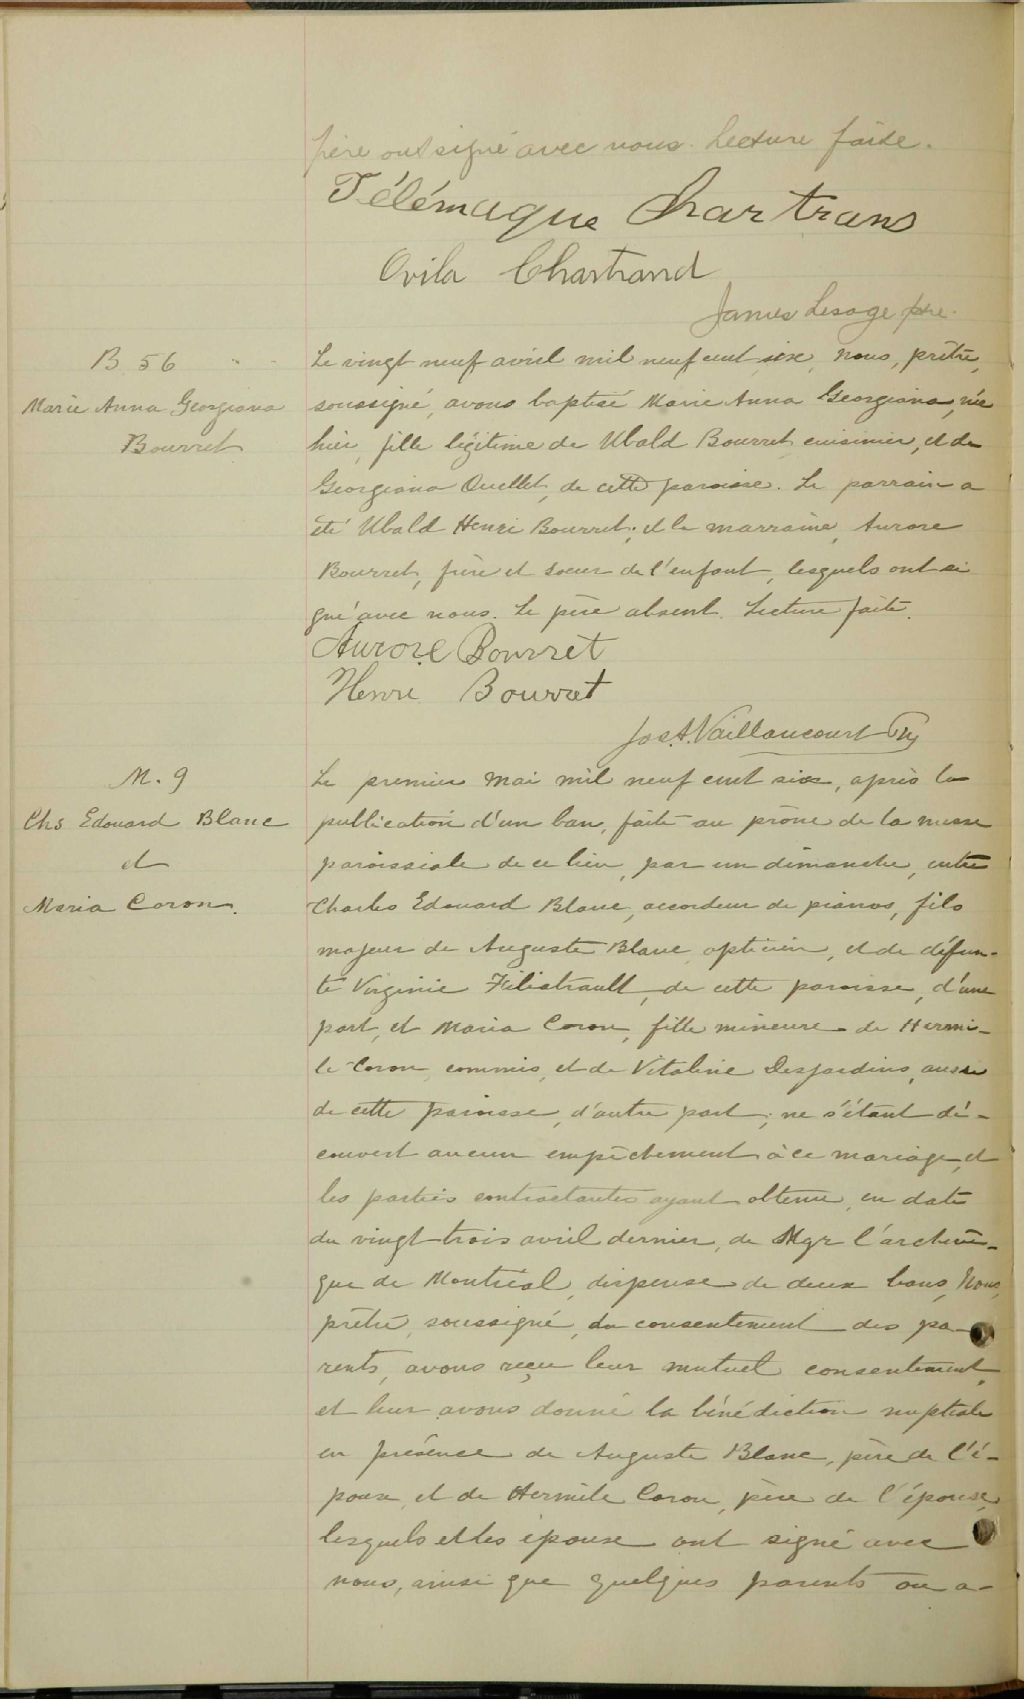 père ont signé avec nous. Lecture faite.
Télémaque Chartrand
Ovila Chartrand
James Lesage ptre.
B 56
Marie Anna Georgiana
Bourret
Le vingt neuf avril mil neuf cent six, nous, prêtre,
soussigné, avons baptisé Marie Anna Georgiana, née
hier, fille légitime de Ubald Bourret, cuisinier, et de
Georgiana Ouellet, de cette paroisse. Le parrain a
été Ubald Henri Bourret; et la marraine, Aurore
Bourret, frère et soeur de l'enfant, lesquels ont si
gné avec nous. Le père absent. Lecture faite.
Aurore Bourret
Henri Bourret
Jos. A. Vaillancourt Ptre
M. 9
Chs Edouard Blanc
et
Maria Coron.
Le premier mai mil neuf cent six, après la
publication d'un ban, faite au prône de la messe
paroissiale de ce lieu, par un dimanche, entre
Charles Edouard Blanc, accordeur de pianos, fils
majeur de Auguste Blanc, opticien, et de défun-
te Virginie Filiatrault, de cette paroisse, d'une
part, et Maria Coron, fille mineure de Hermi-
le Coron, commis, et de Vitaline Desjardins, aussi
de cette paroisse, d'autre part; ne s'étant dé-
couvert aucun empêchement à ce mariage, et
les parties contractantes ayant obtenu, en date
du vingt-trois avril dernier, de Mgr l'archevê-
que de Montréal, dispense de deux bans, Nous,
prêtre, soussigné, du consentement des pa-
rents, avons reçu leur mutuel consentement,
et leur avons donné la bénédiction nuptiale
en présence de Auguste Blanc, père de l'é-
poux, et de Hermile Coron, père de l'épouse,
lesquels et les époux ont signé avec
nous, ainsi que quelques parents ou a-